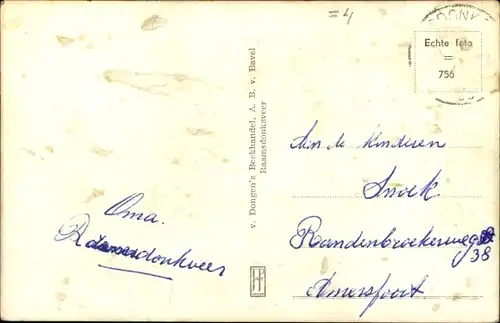 =4
DONK
Echte foto
=
756
Oma.
Raamsdonksveer
v. Dongen's Boekhandel, A. B. v. Bavel
Raamsdonksveer
Aan de kinderen
Snoek
Randenbroekerweg
38
Amersfoort.